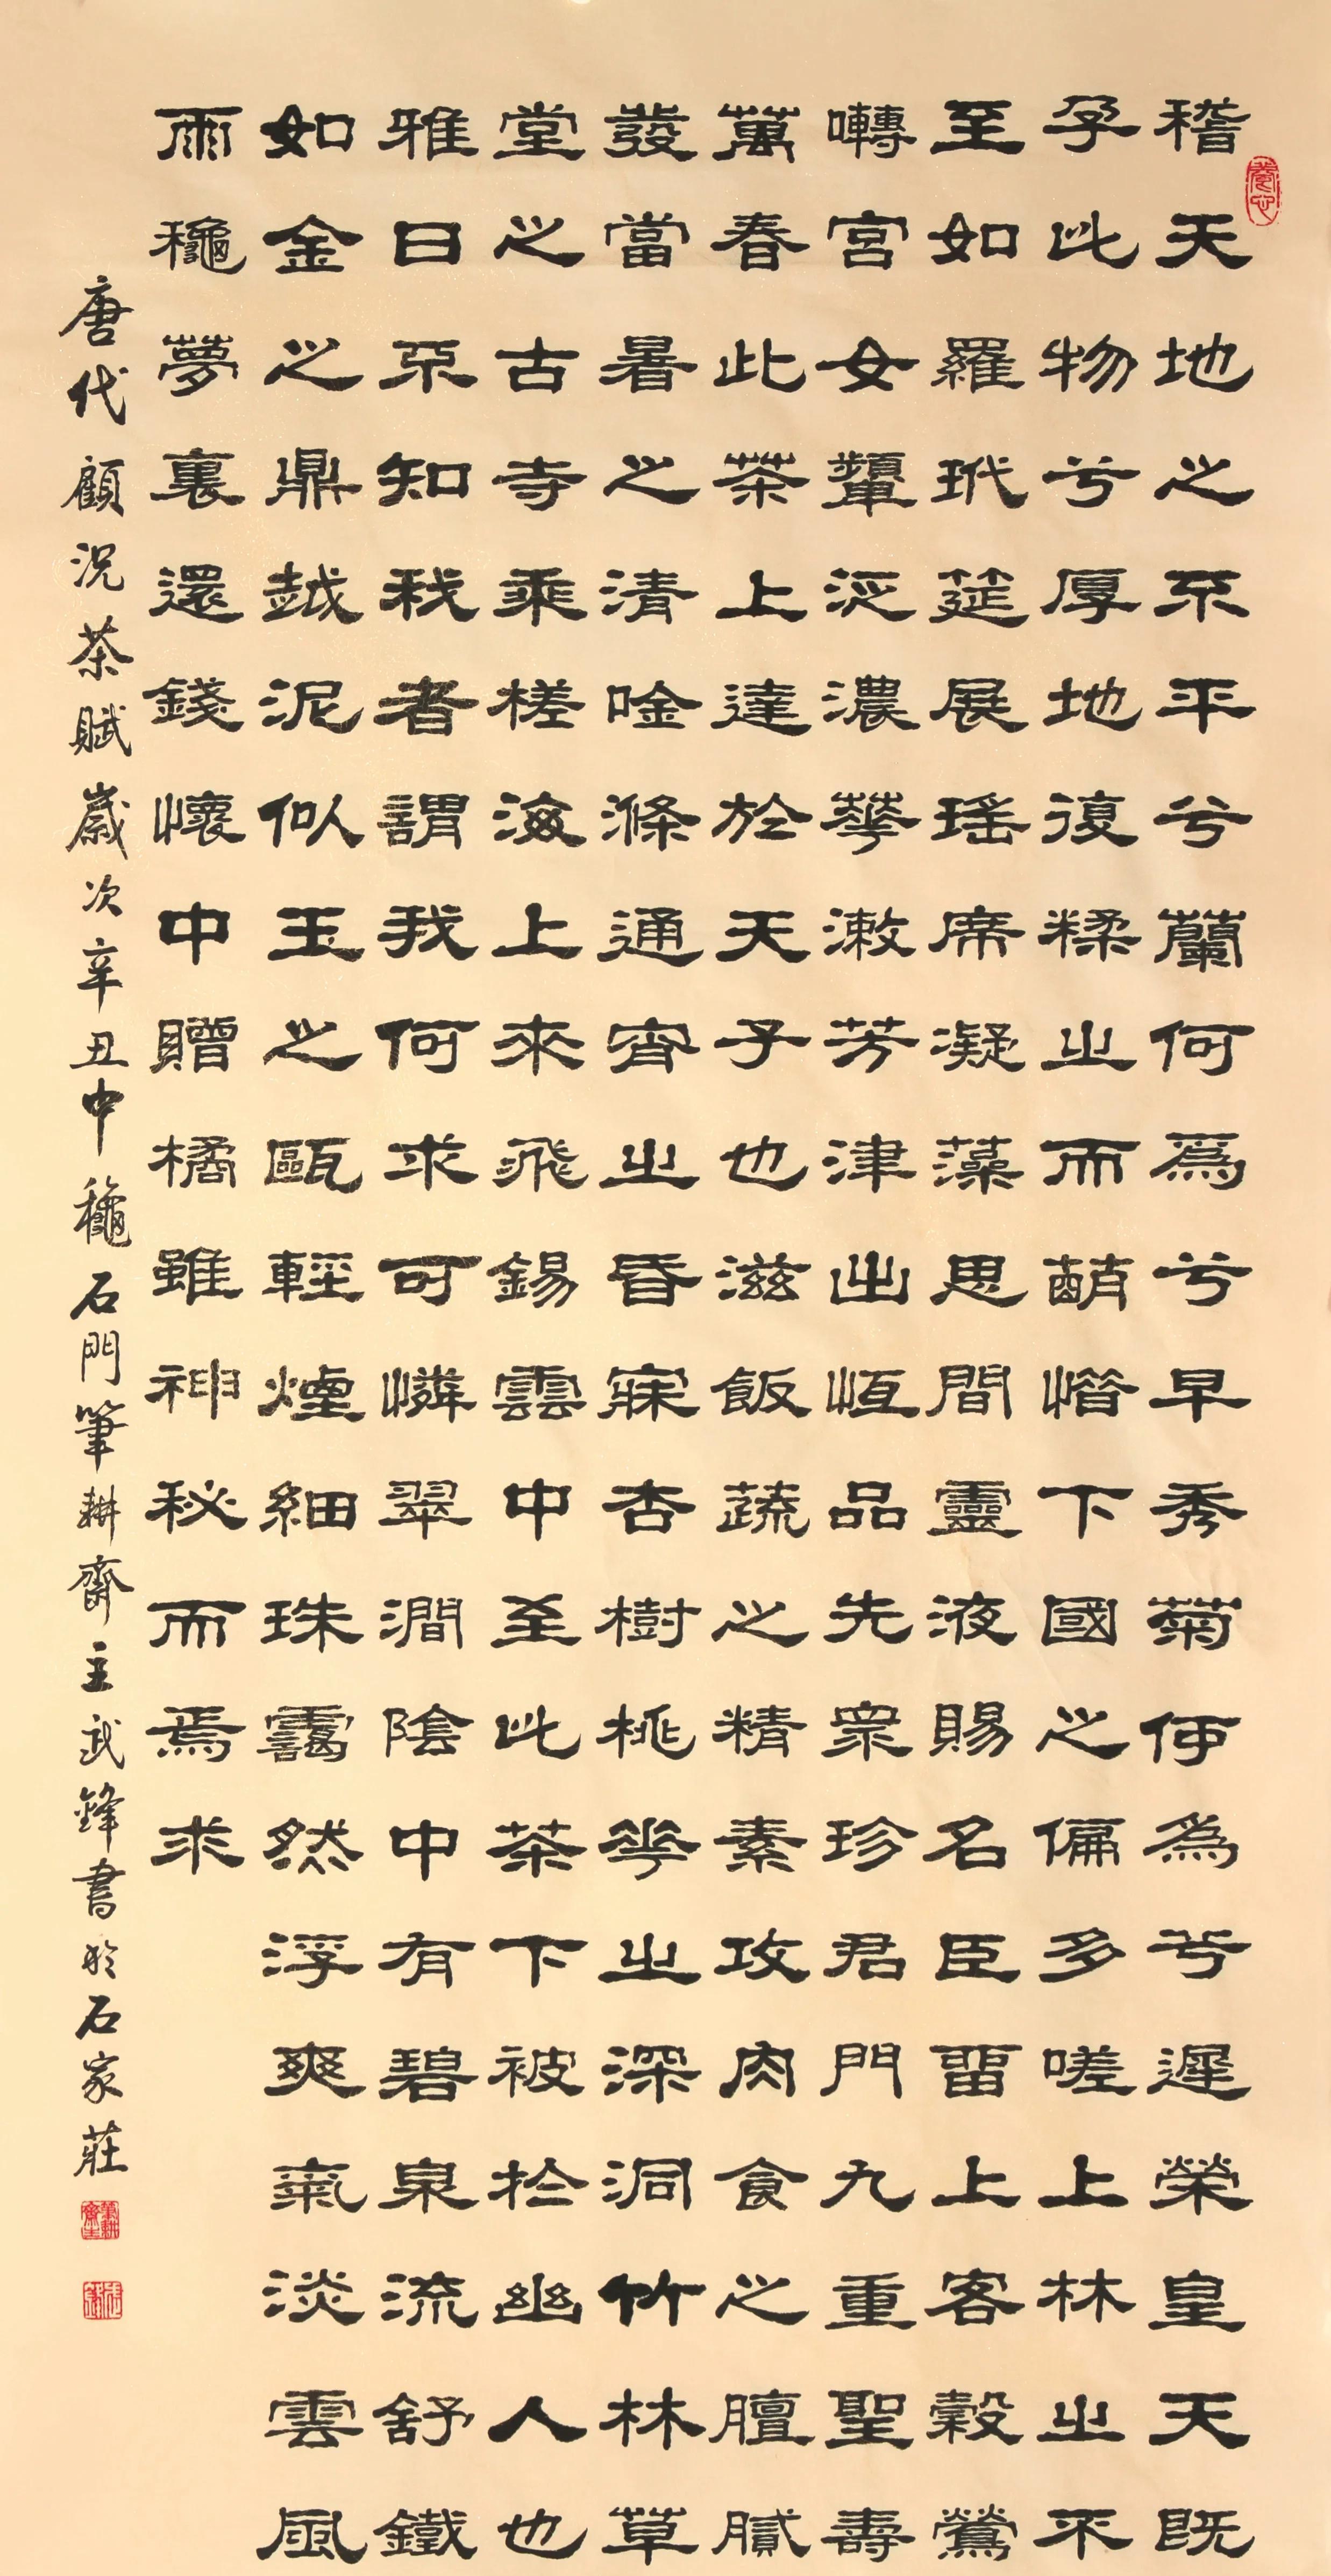 稽天地之不平兮蘭何爲兮早秀菊何爲兮遲榮皇天既
孕此物兮厚地復糅之而萌惜下國之偏多嗟上林之不
至如羅玳筵展瑤席凝藻思間靈液賜名臣留上客穀鶯
囀宮女顰泛濃華漱芳津出恆品先衆珍君門九重聖壽
萬春此茶上達於天子也滋飯蔬之精素攻肉食之膻膩
發當暑之清吟滌通宵之昏寐杏樹桃花之深洞竹林草
堂之古寺乘槎海上來飛錫雲中至此茶下被於幽人也
雅曰不知我者謂我何求可憐翠澗陰中有碧泉流舒鐵
如金之鼎越泥似玉之甌輕煙細珠靄然浮爽氣淡雲風
雨龝夢裏還錢懷中贈橘雖神秘而焉求
唐代顧況茶賦歲次辛丑中龝石門筆耕齋主武鋒書於石家莊